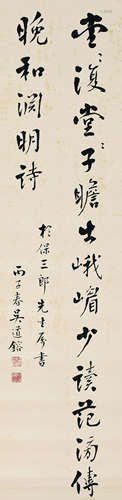 堂〻復堂〻子瞻出峨嵋少讀范滂傳
晚和淵明詩
於保三郎先生屬書
丙子春吳道鎔